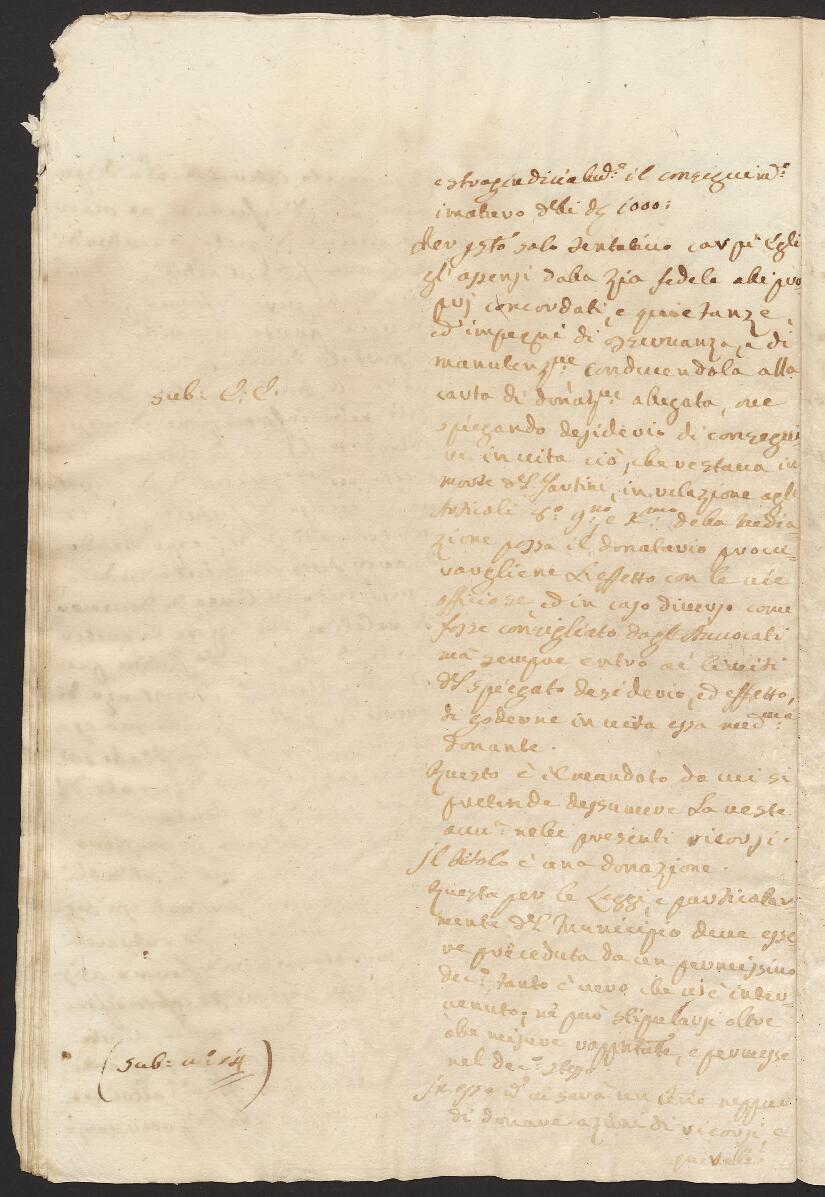 estragiudizialm.e il conseguim.o
intiero delli d. 1000:
Per q.sto solo tentativo carpì Egli
gl'assensi dalla Zia fedele alli pro=
prj concordati, e quietanze,
ed impegni di osservanza, e di
manutenz.ne conducendola alla
sub: C: C.
carta di donaz.ne allegata, ove
spiegando desiderio di consegui=
re in vita ciò, che restava in
morte del Tartini, in relazione agli
Articoli 8.o 9.no e X.mo della Media=
zione possa il donatario procu=
rargliene l'effetto con le vie
officiose, ed in caso diverso come
fosse consigliato dagl'Avvocati
mà sempre entro ai limiti
del spiegato desiderio, ed effetto,
di goderne in vita essa med.ma
donante.
Questo è il mandato da cui si
pretende dessumere la veste
nelli presenti ricorsi.
Il titolo è una donazione.
Questa per le Leggi, e particolar=
mente del Municipio deve esse=
re preceduta da un permissivo
dec.o tanto è vero che vi è inter=
venuto, nè può stipularsi oltre
alle misure rapportate, e permesse
(sub: n.o 14)
nel dec.o stesso
In esso
di donare azioni di ricorsi, e
querelle